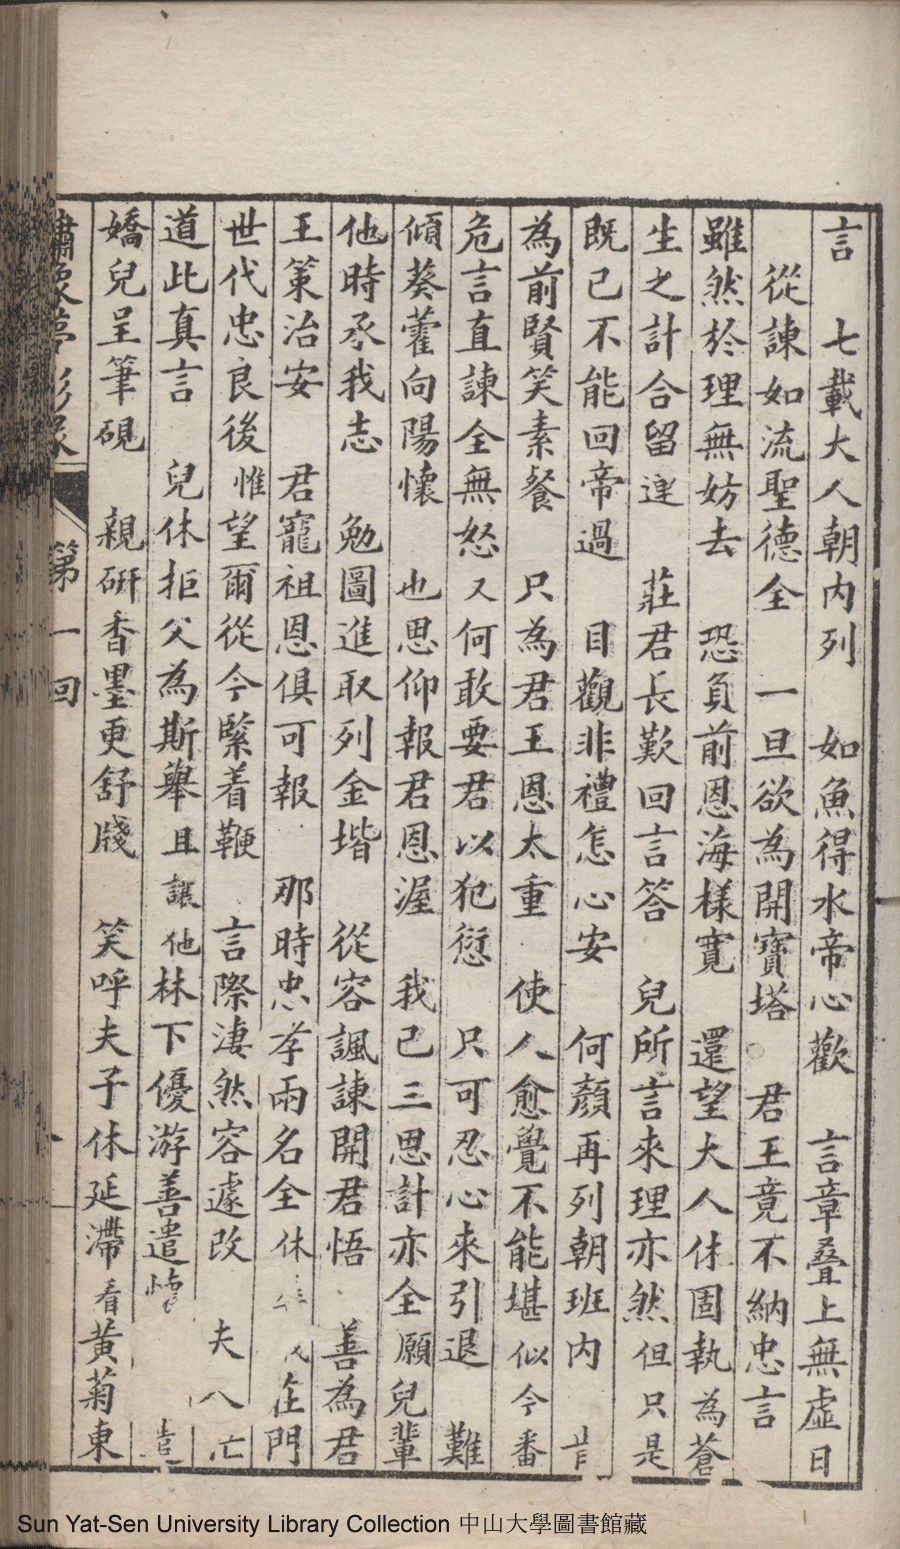 言　七載大人朝內列　如魚得水帝心歡　言章叠上無虛日
從諫如流聖德全　一旦欲為開寶塔　君王竟不納忠言
雖然於理無妨去　恐負前恩海樣寬　還望大人休固執為蒼
生之計合留連　莊君長歎回言答　兒所言來理亦然但只是
既已不能回帝過　目觀非禮怎心安　何顏再列朝班內
為前賢笑素餐　只為君王恩太重　使人愈覺不能堪似今番
危言直諫全無怒又何敢要君以犯愆　只可忍心來引退　難
傾葵藿向陽懷　也思仰報君恩渥　我已三思計亦全願兒輩
他時承我志　勉圖進取列金堦　從容諷諫開君悟　善為君
王策治安　君寵祖恩俱可報　那時忠孝兩名全休　在門
世代忠良後惟望爾從今緊着鞭　言際淒然容遽改　夫人
道此真言　兒休拒父為斯舉且讓他林下優游善遣懷
嬌兒呈筆硯　親研香墨更舒牋　笑呼夫子休延滯看黃菊東
第一回
Sun Yat-Sen University Library Collection 中山大學圖書館藏